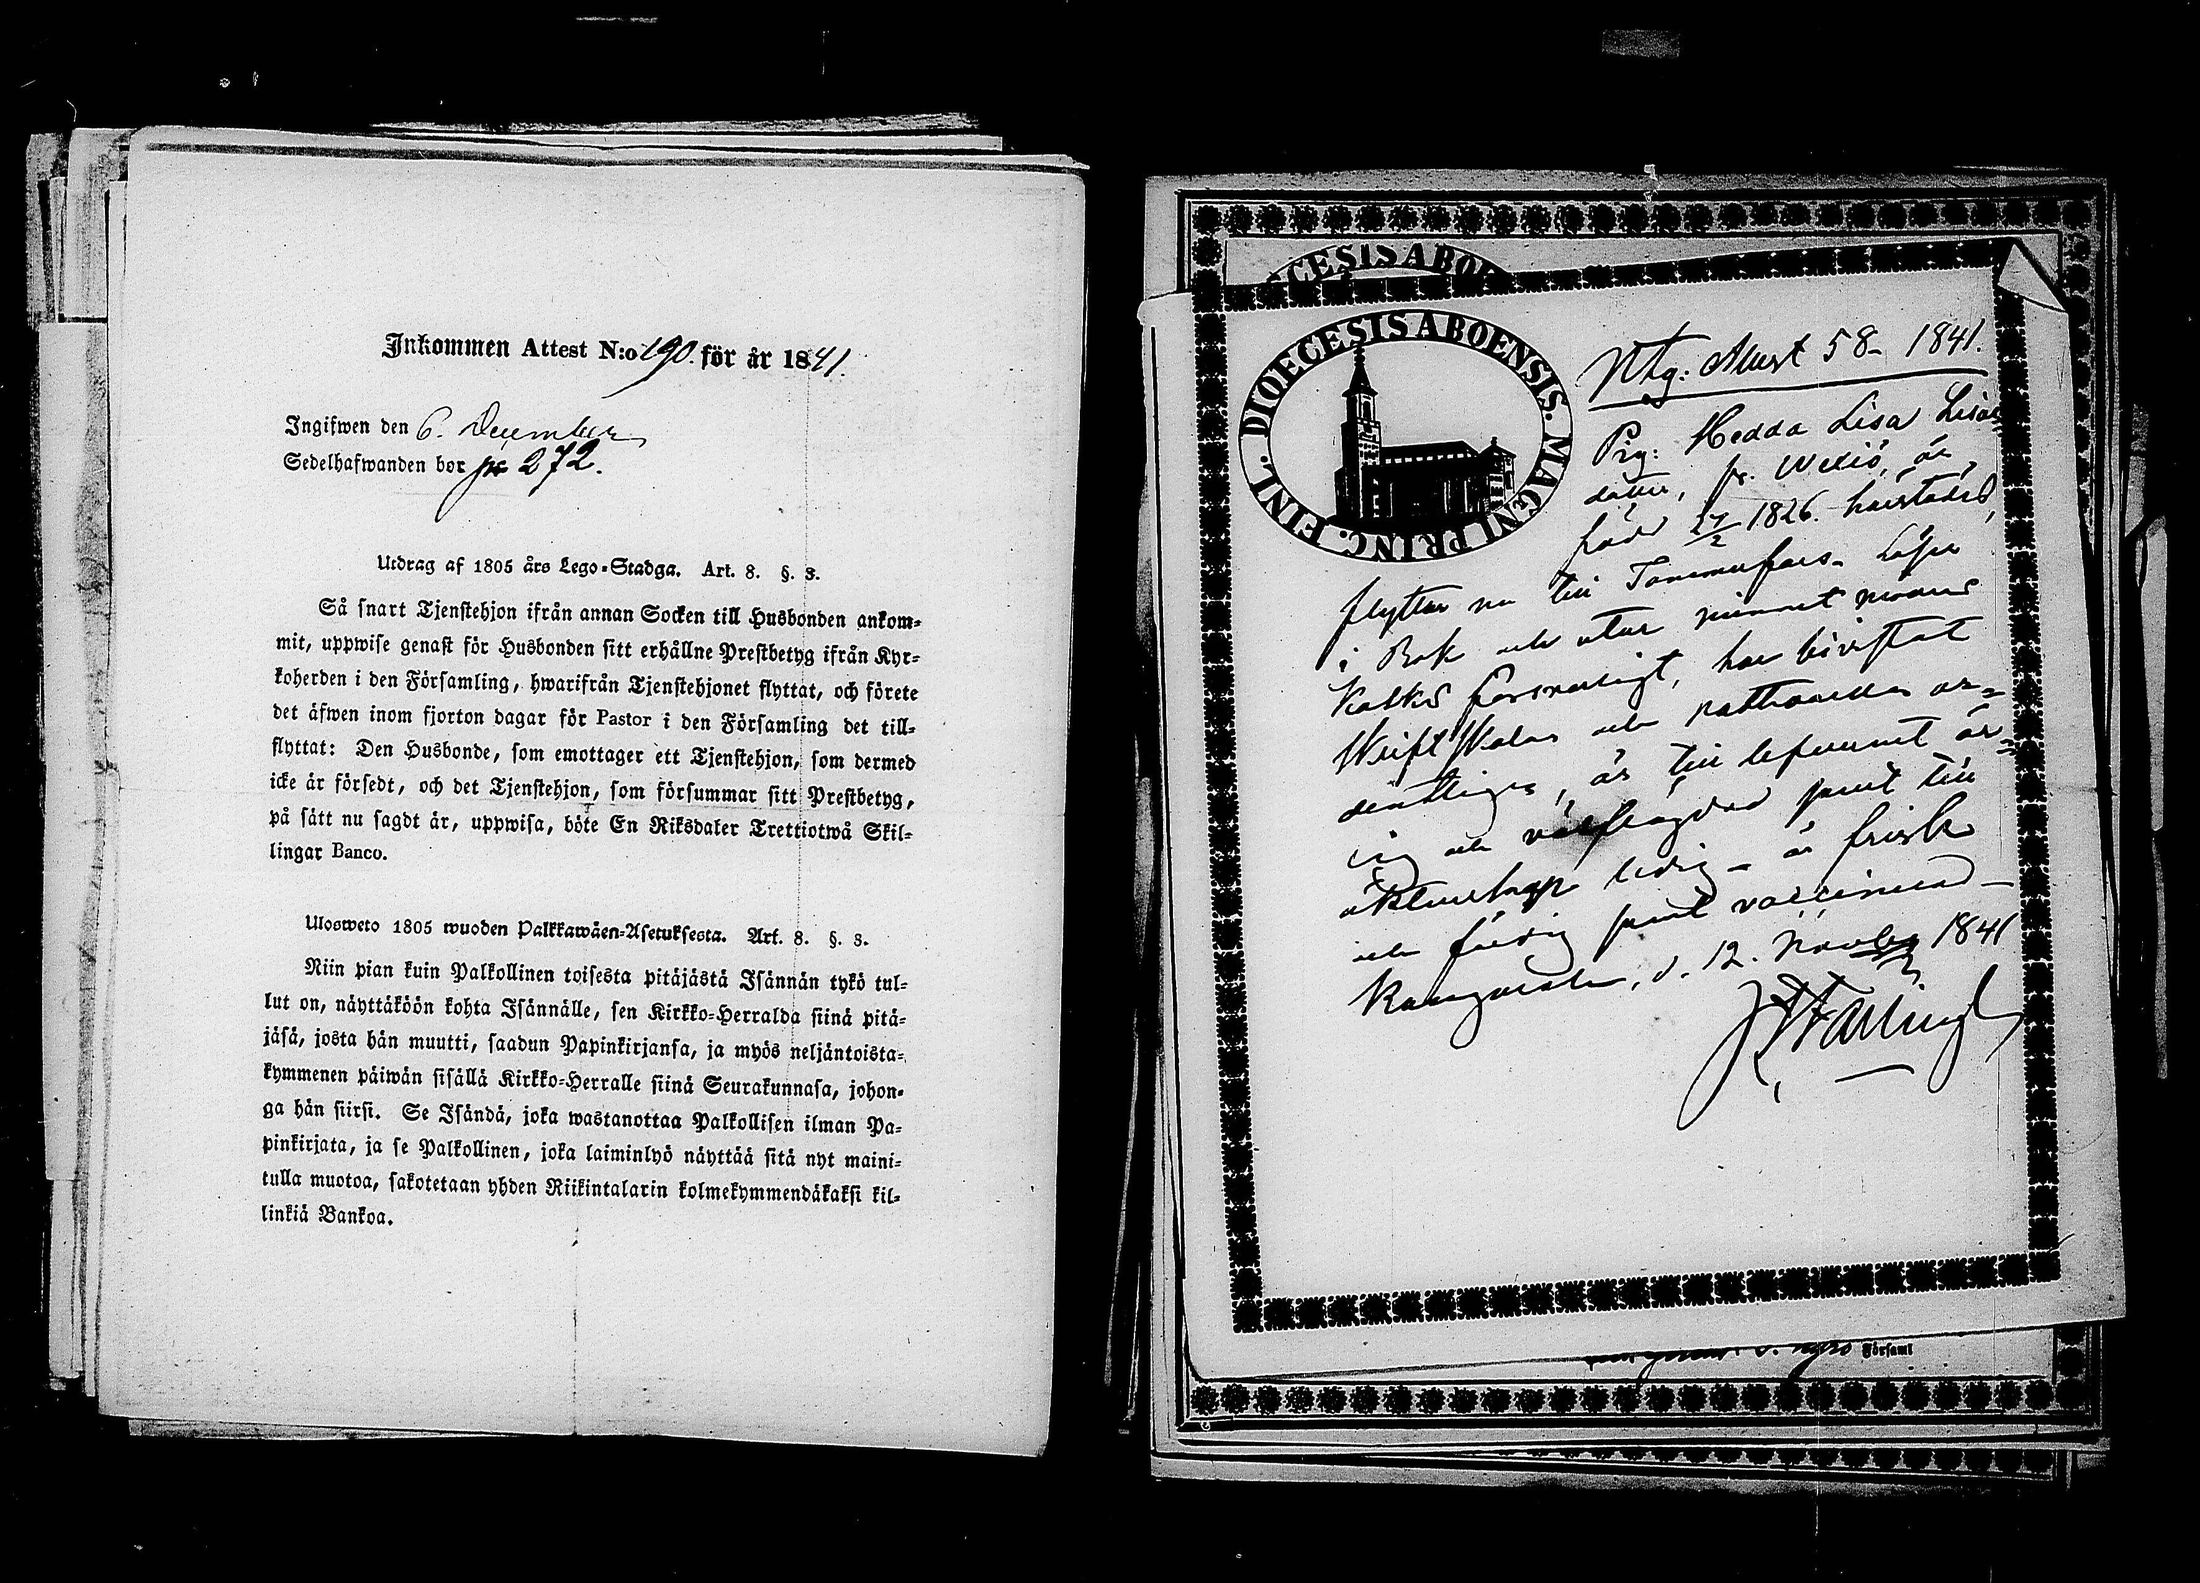 Inkommen Attest N:o 190. för år 1841.
Ingifwen den 6. December
Sedelhafwanden bor p 272.
Utdrag af 1805 års Lego-Stadga. Art. 8. §. 3.
Så snart Tjenstehjon ifrån annan Socken till Husbonden ankom-
mit, uppwise genast för Husbonden sitt erhållne Prestbetyg ifrån Kyr-
koherden i den Församling, hwarifrån Tjenstehjonet flyttat, och förete
det äfwen inom fjorton dagar för Pastor i den Församling det till-
flyttat: Den Husbonde, som emottager ett Tjenstehjon, som dermed
icke är försedt, och det Tjenstehjon, som försummar sitt Prestbetyg,
på sätt nu sagdt är, uppwisa, böte En Riksdaler Trettiotwå Skil-
lingar Banco.
Ulosweto 1805 wuoden Palkkawäen-Asetuksesta. Art. 8. §. 3.
Niin pian kuin Palkollinen toisesta pitäjästä Isännän tykö tul-
lut on, näyttäköön kohta Isännälle, sen Kirkko-Herralda siinä pitä-
jäsä, josta hän muutti, saadun Papinkirjansa, ja myös neljäntoista-
kymmenen päiwän sisällä Kirkko-Herralle siinä Seurakunnasa, johon-
ga hän siirsi. Se Isändä, joka wastanottaa Palkollisen ilman Pa-
pinkirjata, ja se Palkollinen, joka laiminlyö näyttää sitä nyt maini-
tulla muotoa, sakotetaan yhden Riikintalarin kolmekymmendäkaksi kil-
linkiä Bankoa.
CESIS ABO
DIOECESIS ABOENSIS. MAGNI PRINC. FINL.
Utg: Attest 58- 1841.
Pig: Hedda Lisa Lisas
dotter, fr. Wexiö, är
född 27/2 1826. härstädes,
flyttar nu till Tammerfors. Läser
i Bok och utur minnet
försvarligt, har bivistat
Skrift Skolan och nattvarden or-
dentligen, är till
och välfrägdad samt till
äktenskap ledig - är frisk
och färdig samt vaccinerad -
Kangasala, d. 12. Novber 1841
Församl